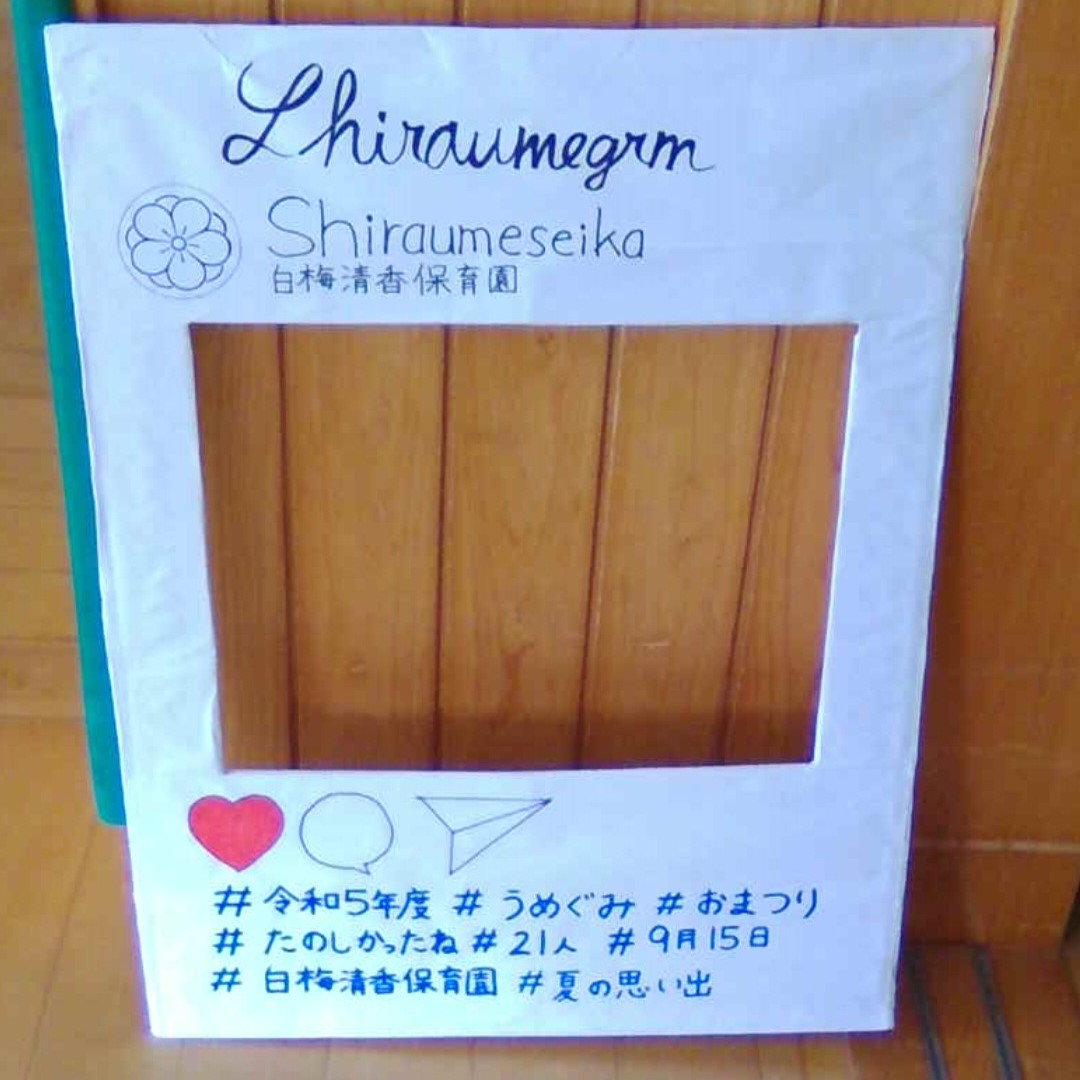 Shiraumegrm
Shiraumeseika
白梅清香保育園
# 令和5年度 # うめぐみ # おまつり
# たのしかったね # 21人 # 9月15日
# 白梅清香保育園 # 夏の思い出